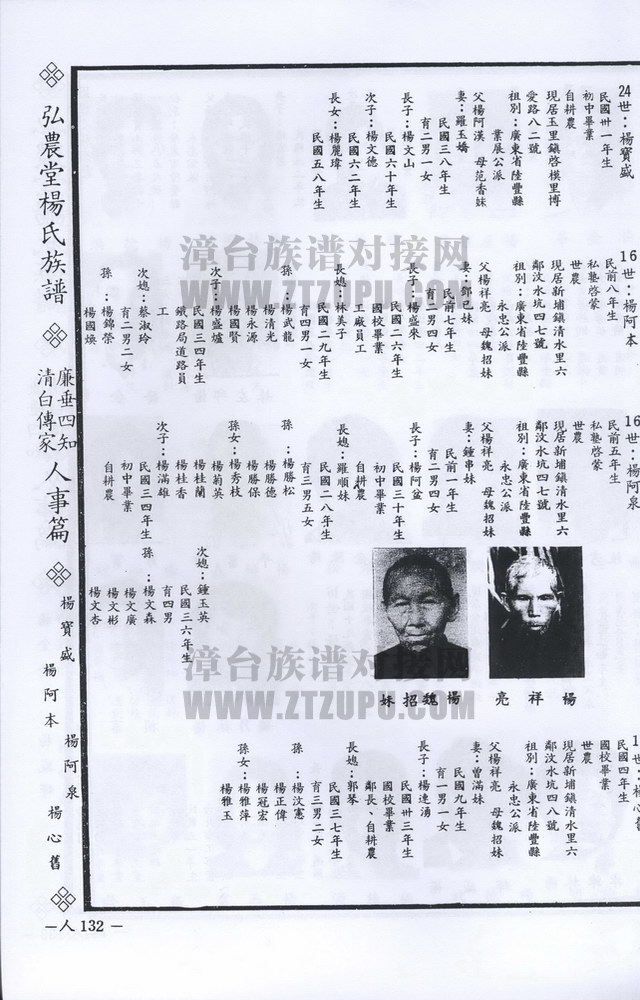 24世：楊寶盛
民國卅一年生
初中畢業
自耕農
現居玉里鎮啓模里博
愛路八二號
祖別：廣東省陸豐縣
業展公派
父楊阿漢　母范香妹
妻：羅玉嬌
民國三八年生
育二男一女
長子：楊文山
民國六十年生
次子：楊文德
民國六二年生
長女：楊麗瑋
民國五八年生
16世：楊阿本
民前八年生
私塾啓蒙
世農
現居新埔鎮清水里六
鄰汶水坑四七號
祖別：廣東省陸豐縣
永忠公派
父楊祥亮　母魏招妹
妻：鄧己妹
民前七年生
育二男四女
長子：楊盛來
民國二六年生
國校畢業
工廠員工
長媳：林美子
民國二九年生
育四男一女
孫：楊武龍
楊清光
楊永源
楊國賢
次子：楊盛爐
民國三四年生
鐵路局道路員
工
次媳：蔡淑玲
育二男二女
孫：楊錦榮
楊國煥
16世：楊阿泉
民前五年生
私塾啓蒙
世農
現居新埔鎮清水里六
鄰汶水坑四七號
祖別：廣東省陸豐縣
永忠公派
父楊祥亮　母魏招妹
妻：鍾串妹
民前一年生
育二男四女
長子：楊阿盆
民國三十年生
初中畢業
自耕農
長媳：羅順妹
民國二八年生
育三男五女
孫：楊勝松
楊勝德
楊勝保
孫女：楊秀枝
楊菊英
楊桂蘭
楊桂香
次子：楊滿雄
民國三四年生
初中畢業
自耕農
次媳：鍾玉英
民國三六年生
育四男
孫：楊文森
楊文廣
楊文彬
楊文杏
亮祥楊
妹招魏楊
民國四年生
國校畢業
世農
現居新埔鎮清水里六
鄰汶水坑四八號
祖別：廣東省陸豐縣
永忠公派
父楊祥亮　母魏招妹
妻：曾滿妹
民國九年生
育一男一女
長子：楊達湧
民國卅三年生
國校畢業
鄰長、自耕農
長媳：郭琴
民國三七年生
育三男二女
孫：楊汶憲
楊正偉
楊冠宏
孫女：楊雅萍
楊雅玉
弘農堂楊氏族譜
廉垂四知
清白傳家
人事篇
楊寶盛
楊阿本
楊阿泉
楊心舊
－人132－
漳台族谱对接网
WWW.ZTZUPU.COM
漳台族谱对接网
WWW.ZTZUPU.COM